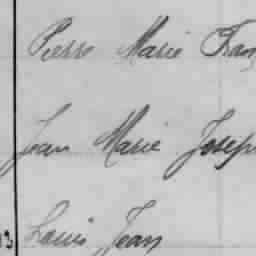 Pierre Marie Fran
Jean Marie Joseph
13 Louis Jean